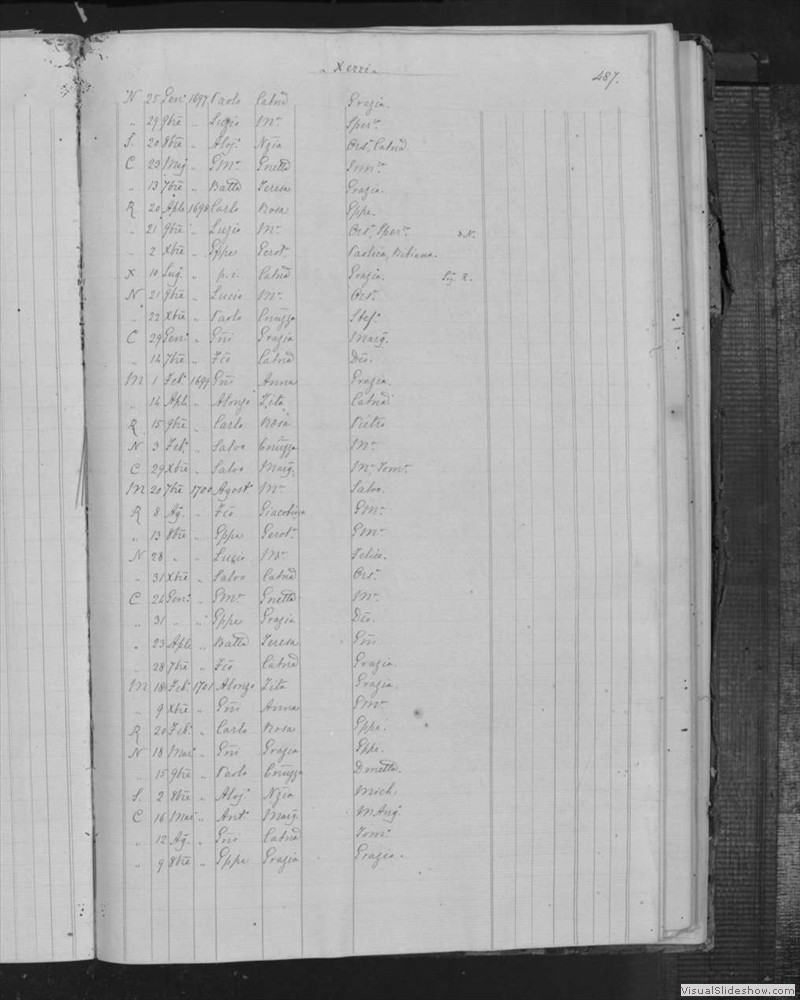 Xerri
487.
N 25 Gen. 1697 Paolo Catnd Grazia.
" 29 9bre " Luzio Mr. Sper.
S. 20 8bre " Aloj. Nzia Ors. Catnd
C 23 Mag. " GMr. Gnetta Inn.
" 13 7bre " Batta Teresa Grazia
R 20 Aple 1698 Carlo Rosa Gppe.
" 21 9bre " Luzio Mr. Ors. Sper. N.
" 2 Xbre " Gppe Gerot. Paolica, Bibiana.
X 10 Lug. " p.i. Catnd Grazia.
N 21 9bre " Lucio Mr. Ors.
" 22 Xbre " Paolo Gnuzza Stef.
C 29 Gen. " Gni Grazia Marg.
" 14 7bre " Fco Catnd Dco.
M 1 Feb. 1699 Gni Anna Grazia.
" 14 Aple " Alonzo Zita Catnd
R 15 9bre " Carlo Rosa Pietro
N 3 Feb. " Salvo Gnuzza Mr.
C 29 Xbre " Salvo Marg. Mr. Tom.
M 20 7bre 1700 Agost. Mr. Salvo.
R 8 Ag. " Fco Giacobina GMr.
" 13 8bre " Gppe Gerot. GMr.
N 28 " " Luzio Mr. Felice.
" 31 Xbre " Salvo Catnd Ors.
C 24 Gen. " GMr. Gnetta Mr.
" 31 " " Gppe Grazia Dco.
" 23 Aple " Batta Teresa Gni
" 28 7bre " Fco Catnd Grazia.
M 18 Feb. 1701 Alonzo Zita Grazia.
" 9 Xbre " Gni Anna GMr.
R 20 Feb. " Carlo Rosa Gppe.
N 18 Mar. " Gni Grazia Gppe.
" 15 9bre " Paolo Gnuzza Dnetta.
S. 2 8bre " Aloj. Nzia Mich.
C 16 Mar. " Ant. Marg. MAng.
" 12 Ag. " Gni Catnd Tom.
" 9 8bre " Gppe Grazia Grazia.
VisualSlideshow.com